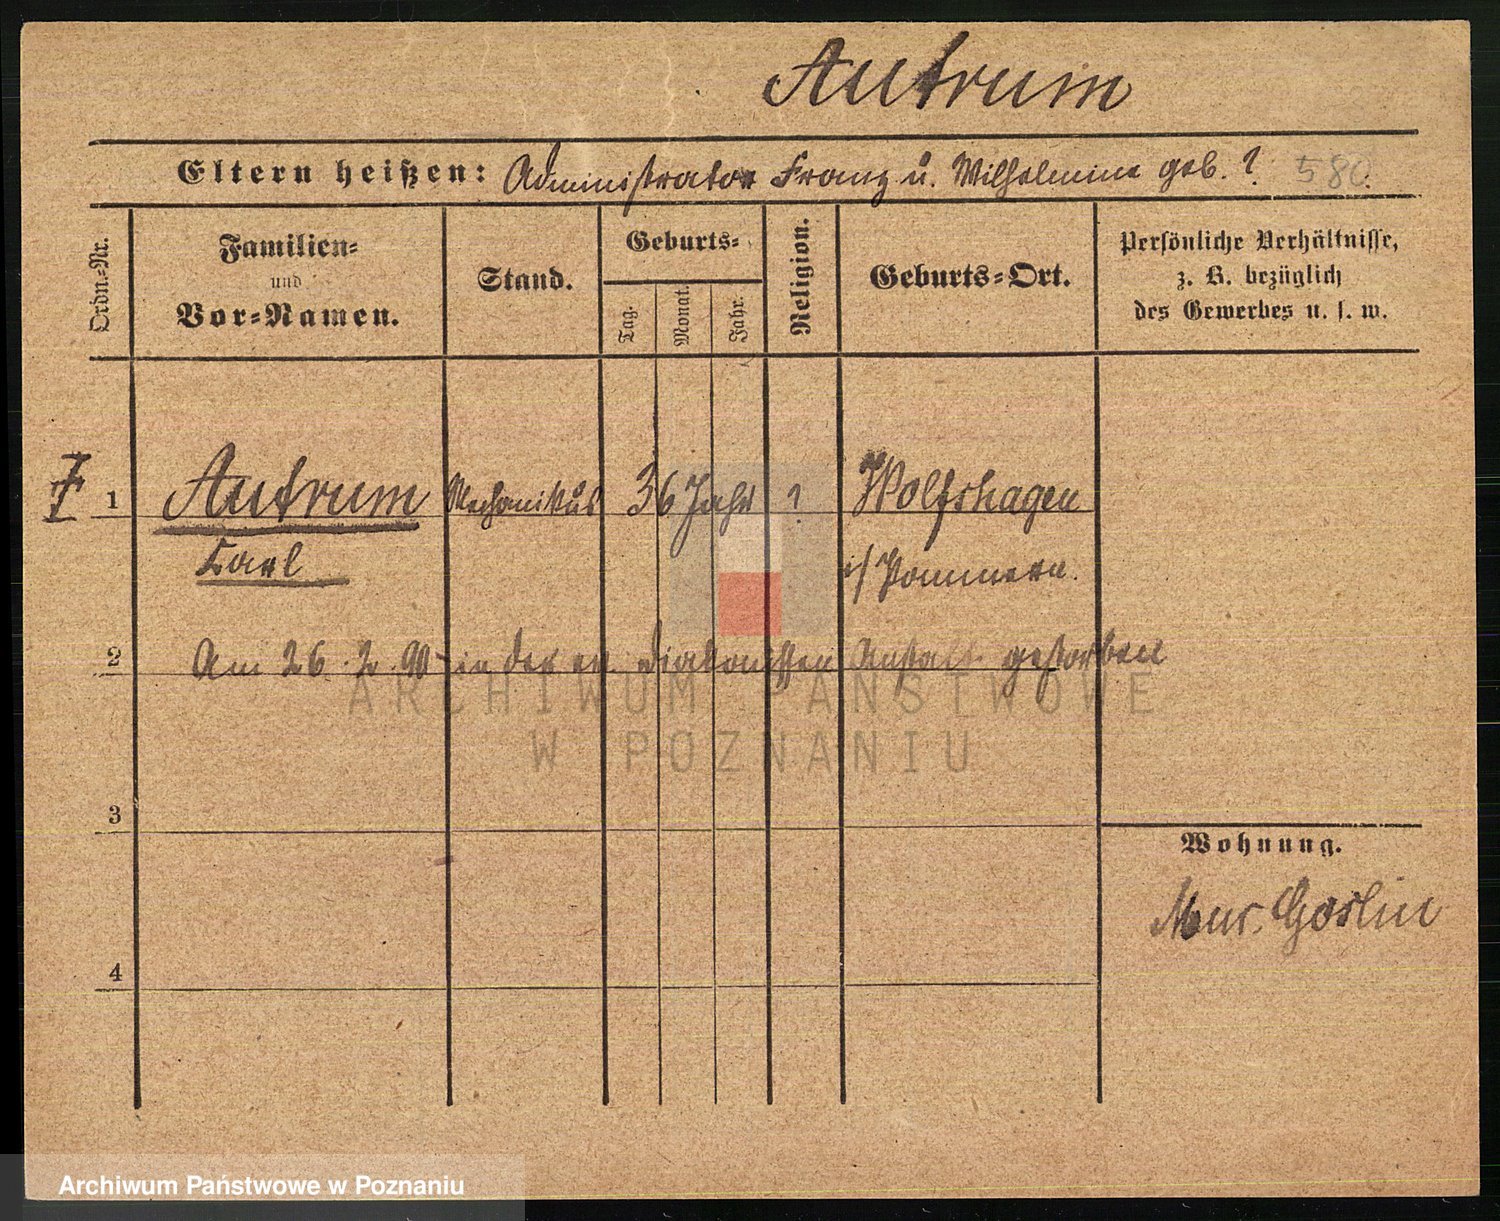 Autrum
Eltern heißen: Administrator Franz u. Wilhelmine geb. ? 580.
Ordn.-Nr.
Familien-
und
Vor-Namen.
Stand.
Geburts-
Tag.
Monat.
Jahr.
Religion.
Geburts-Ort.
Persönliche Verhältnisse,
z. B. bezüglich
des Gewerbes u. s. w.
1 Autrum Mechanikus 36 Jahr ? Wolfshagen
Carl i/ Pommern.
2 Am 26. 2. 90 in der ev. Diakonissen Anstalt gestorben
3
4
Wohnung.
Mur. Goslin
ARCHIWUM PAŃSTWOWE
W POZNANIU
Archiwum Państwowe w Poznaniu